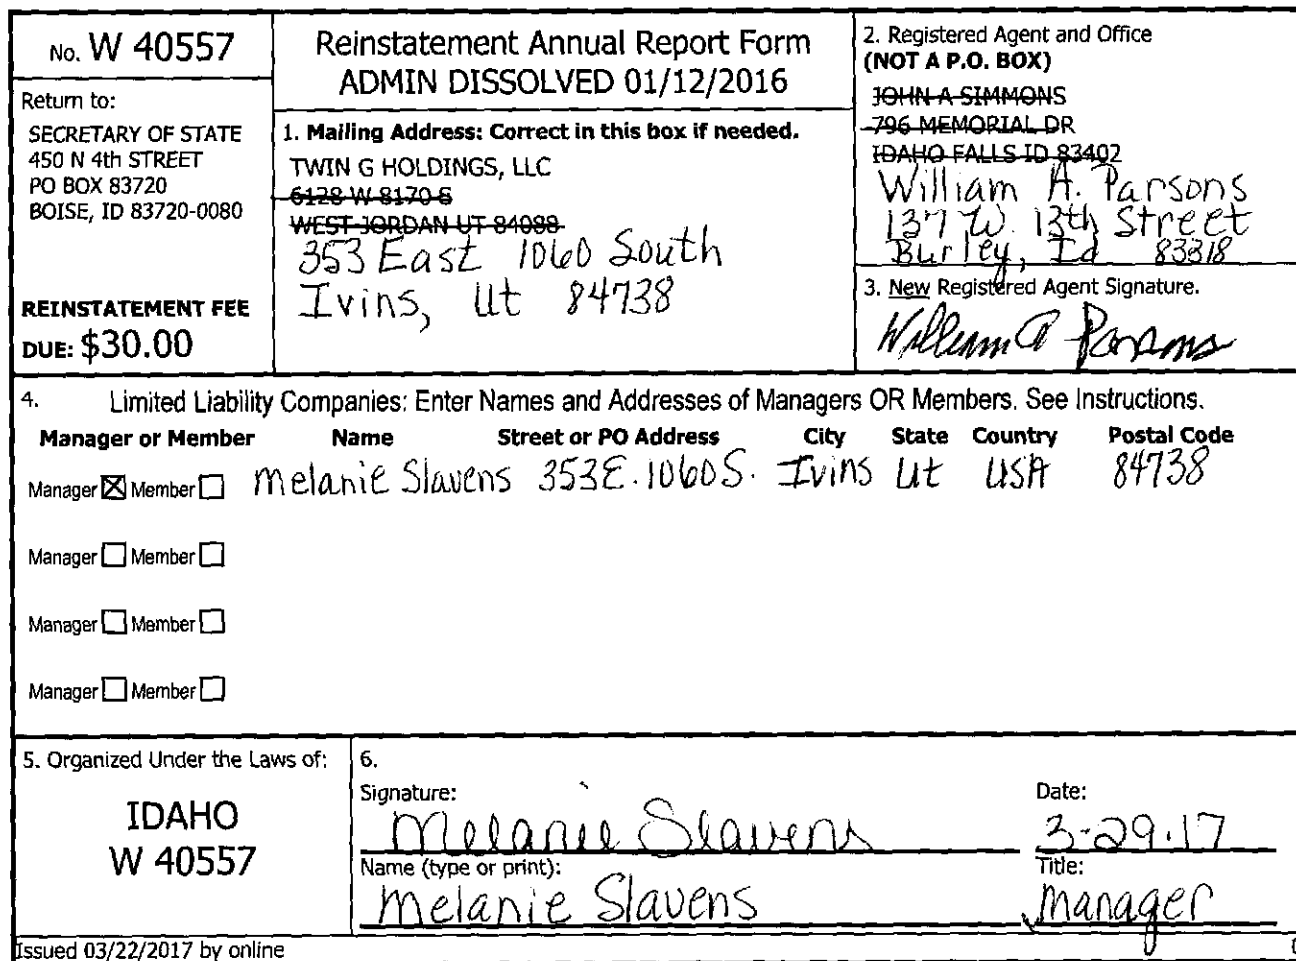 No. W 40557
Return to:
SECRETARY OF STATE
450 N 4th STREET
PO BOX 83720
BOISE, ID 83720-0080
REINSTATEMENT FEE
DUE: $30.00
Reinstatement Annual Report Form
ADMIN DISSOLVED 01/12/2016
1. Mailing Address: Correct in this box if needed.
TWIN G HOLDINGS, LLC
6128 W 8170 S
WEST JORDAN UT 84088
353 East 1060 South
Ivins, Ut 84738
2. Registered Agent and Office
(NOT A P.O. BOX)
JOHN A SIMMONS
796 MEMORIAL DR
IDAHO FALLS ID 83402
William A. Parsons
137 W. 13th Street
Burley, Id 83318
3. New Registered Agent Signature.
William A Parsons
4. Limited Liability Companies: Enter Names and Addresses of Managers OR Members. See Instructions.
Manager or Member Name Street or PO Address City State Country Postal Code
Manager Member Melanie Slavens 353 E. 1060 S. Ivins Ut USA 84738
Manager Member
Manager Member
Manager Member
5. Organized Under the Laws of:
IDAHO
W 40557
6.
Signature: Date:
Melanie Slavens 3-29-17
Name (type or print): Title:
Melanie Slavens Manager
Issued 03/22/2017 by online